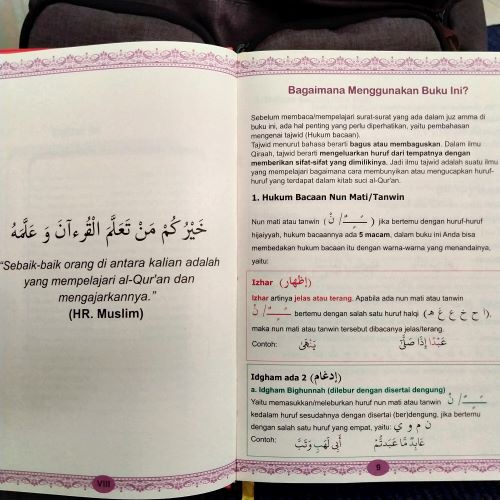 خَيْرُكُمْ مَنْ تَعَلَّمَ الْقُرْءَانَ وَ عَلَّمَهُ
"Sebaik-baik orang di antara kalian adalah
yang mempelajari al-Qur'an dan
mengajarkannya."
(HR. Muslim)
VIII
Bagaimana Menggunakan Buku Ini?
Sebelum membaca/mempelajari surat-surat yang ada dalam juz amma di
buku ini, ada hal penting yang perlu diperhatikan, yaitu pembahasan
mengenai tajwid (Hukum bacaan).
Tajwid menurut bahasa berarti bagus atau membaguskan. Dalam ilmu
Qiraah, tajwid berarti mengeluarkan huruf dari tempatnya dengan
memberikan sifat-sifat yang dimilikinya. Jadi ilmu tajwid adalah suatu ilmu
yang mempelajari bagaimana cara membunyikan atau mengucapkan huruf-
huruf yang terdapat dalam kitab suci al-Qur'an.
1. Hukum Bacaan Nun Mati/Tanwin
Nun mati atau tanwin ( ــًــٍــٌ / نْ ) jika bertemu dengan huruf-huruf
hijaiyyah, hukum bacaannya ada 5 macam, dalam buku ini Anda bisa
membedakan hukum bacaan itu dengan warna-warna yang menandainya,
yaitu:
Izhar (إظهار)
Izhar artinya jelas atau terang. Apabila ada nun mati atau tanwin
ــًــٍــٌ / نْ bertemu dengan salah satu huruf halqi (ا ح خ ع غ ه),
maka nun mati atau tanwin tersebut dibacanya jelas/terang.
Contoh: يَنْهَىٰ عَبْدًا إِذَا صَلَّىٰ
Idgham ada 2 (إدغام)
a. Idgham Bighunnah (dilebur dengan disertai dengung)
Yaitu memasukkan/meleburkan huruf nun mati atau tanwin ــًــٍــٌ / نْ
kedalam huruf sesudahnya dengan disertai (ber)dengung, jika bertemu
dengan salah satu huruf yang empat, yaitu: ن م و ي
Contoh: أَبِي لَهَبٍ وَتَبَّ عَابِدٌ مَّا عَبَدتُّمْ
9